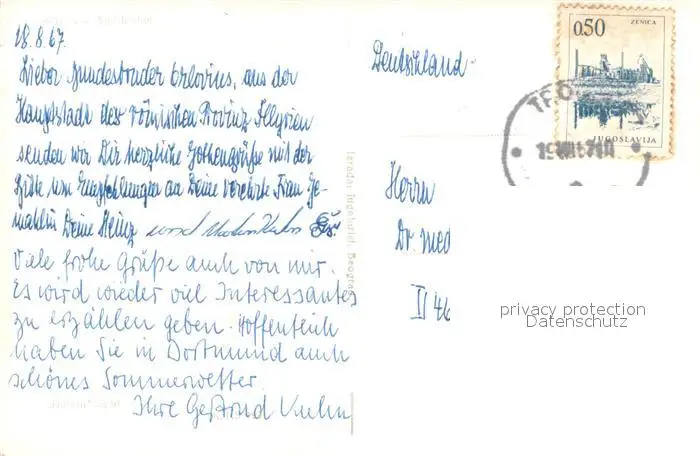 18.8.67.
Lieber Bundesbruder Orlovius, aus der
Hauptstadt der römischen Provinz Illyrien
senden wir Dir herzliche Gothengrüße mit der
Bitte um Empfehlungen an Deine verehrte Frau Ge-
mahlin Deine Heinz und
Viele frohe Grüße auch von mir.
Es wird wieder viel Interessantes
zu erzählen geben. Hoffentlich
haben Sie in Dortmund auch
schönes Sommerwetter.
Ihre Gertrud Kuhn
Deutschland
Herrn
Dr. med
II 46
0.50
ZENICA
JUGOSLAVIJA
privacy protection
Datenschutz